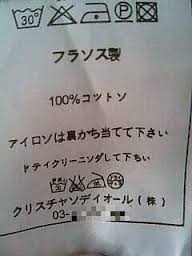 30°
フラソス製
100%コットソ
アイロソは裏かち当てて下さい
ドティクリーニソダして下ちい
クリスチャソデイオール(株)
03-